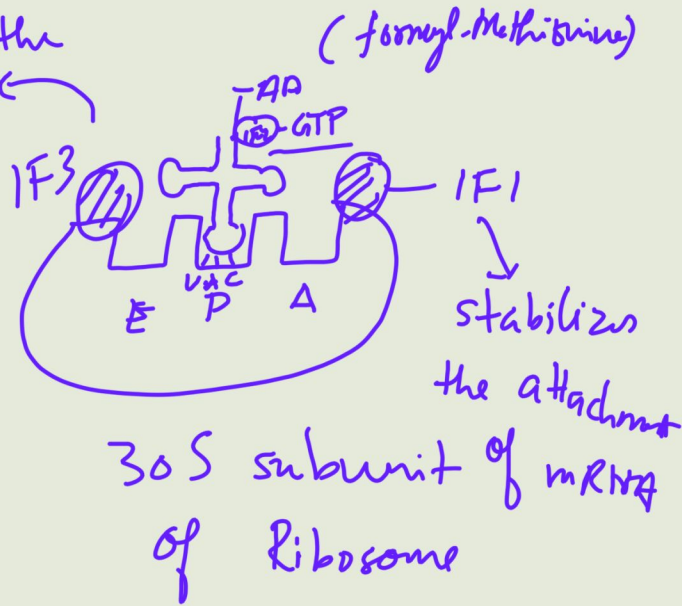 the
(formyl-Methionine)
AA
IF2 - GTP
IF3
IF1
UAC
E P A
stabilizes
the attachment
of mRNA
30S subunit
of Ribosome